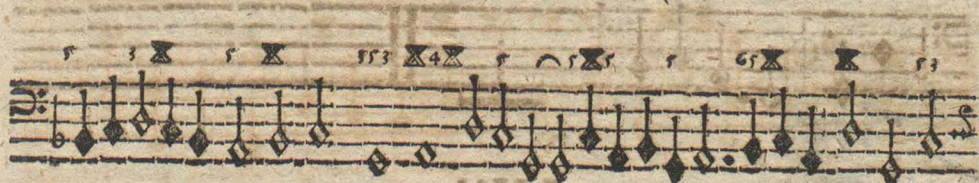 5 3 5 5 5 3 4 5 5 5 5 6 5 5 3